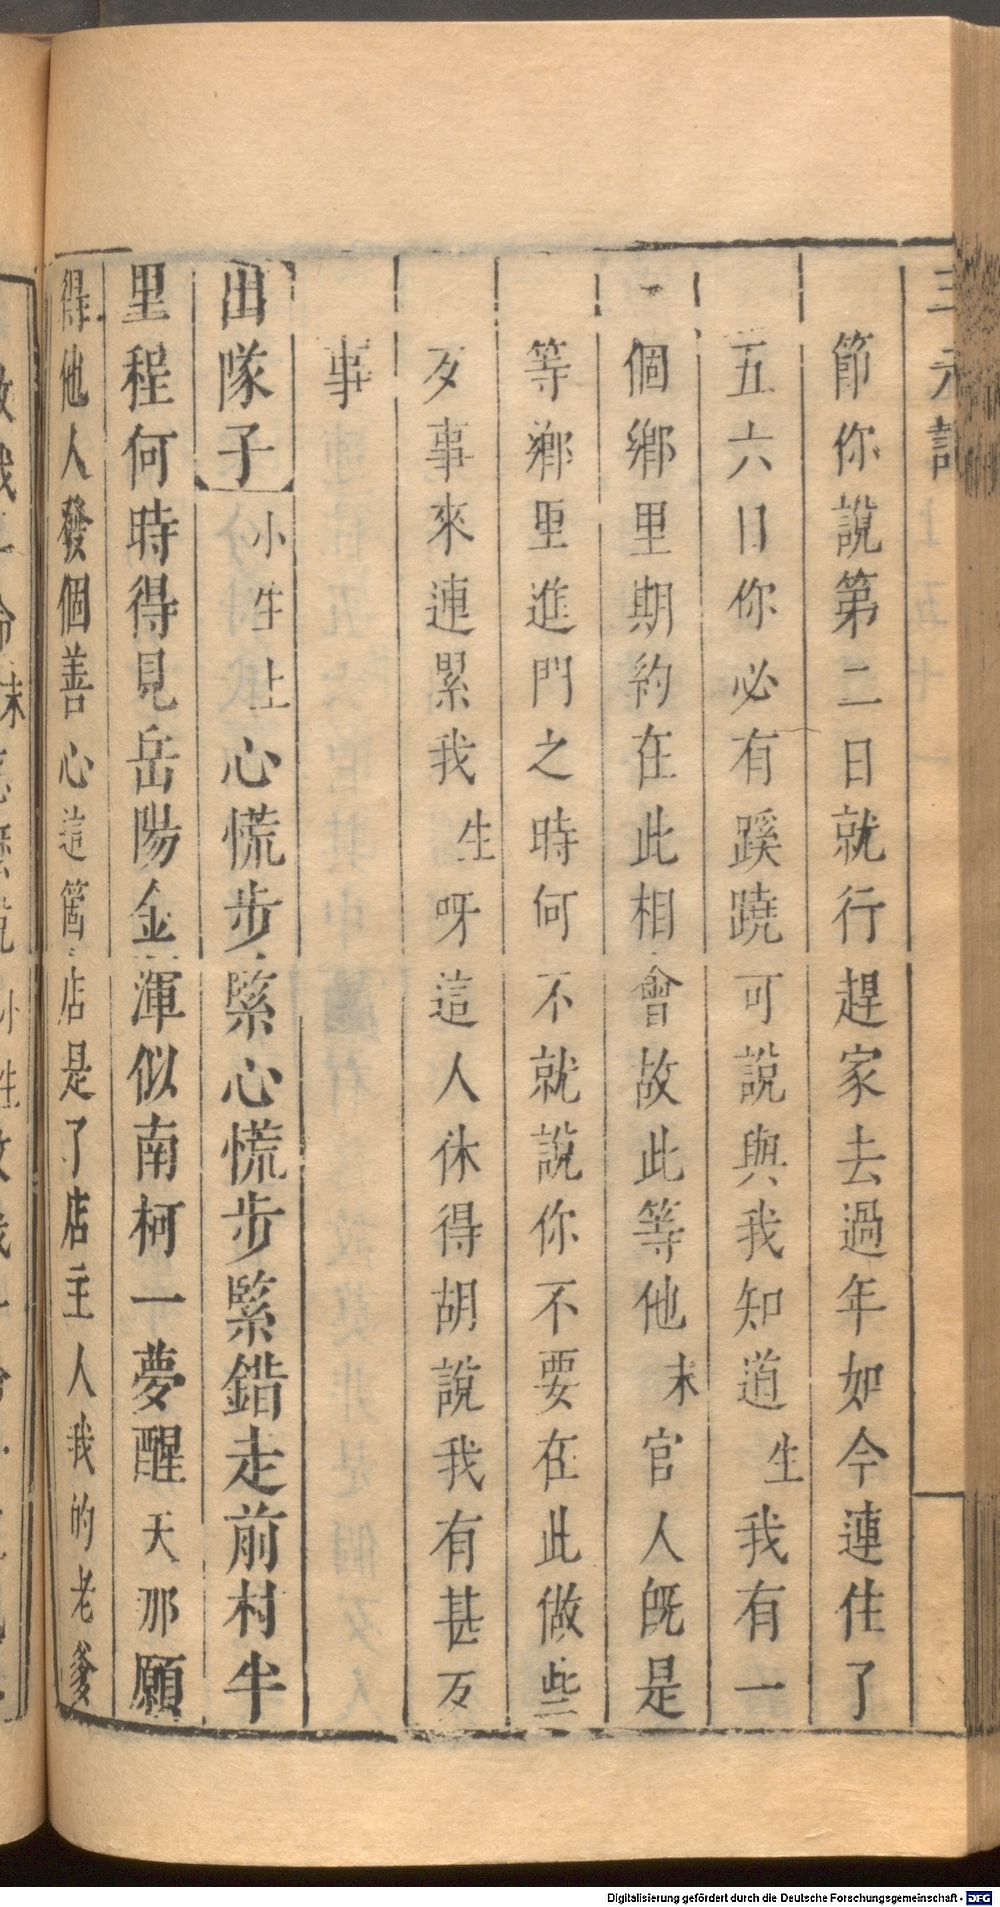 三元記
節你說第二日就行趕家去過年如今連住了
五六日你必有蹊蹺可說與我知道生我有一
個鄉里期約在此相會故此等他末官人旣是
等鄉里進門之時何不就說你不要在此做些
歹事來連累我生呀這人休得胡說我有甚歹
事
出隊子小生上心慌步緊心慌步緊錯走前村半
里程何時得見岳陽金渾似南柯一夢醒天那願
得他人發個善心這箇店是了店主人我的老爹
Digitalisierung gefördert durch die Deutsche Forschungsgemeinschaft - DFG